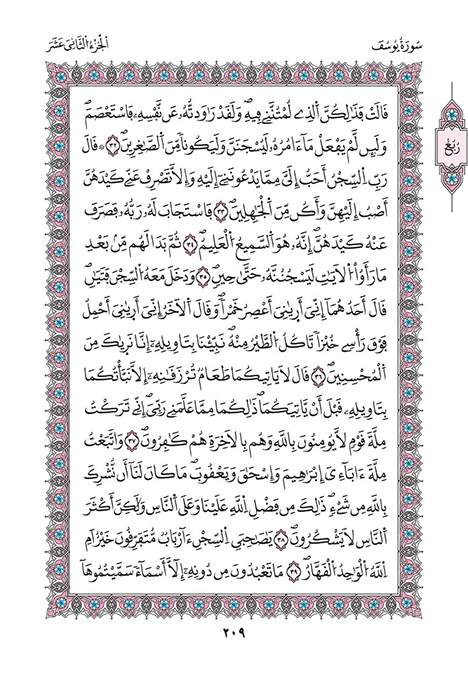 سُورَةُ يُوسُفَ
اَلْجُزْءُ الثَّانِي عَشَرَ
رُبُعٌ
قَالَتْ فَذَٰلِكُنَّ اَلذِے لُمْتُنَّنِے فِيهِ وَلَقَدْ رَاوَدتُّهُۥ عَن نَّفْسِهِۦ فَاسْتَعْصَمَ
وَلَئِن لَّمْ يَفْعَلْ مَآ ءَامُرُهُۥ لَيُسْجَنَنَّ وَلَيَكُوناٗ مِّنَ اَلصَّٰغِرِينَ ٣٢ قَالَ
رَبِّ اِلسِّجْنُ أَحَبُّ إِلَيَّ مِمَّا يَدْعُونَنِےٓ إِلَيْهِ وَإِلَّا تَصْرِفْ عَنِّے كَيْدَهُنَّ
أَصْبُ إِلَيْهِنَّ وَأَكُن مِّنَ اَلْجَٰهِلِينَ ٣٣ فَاسْتَجَابَ لَهُۥ رَبُّهُۥ فَصَرَفَ
عَنْهُ كَيْدَهُنَّ إِنَّهُۥ هُوَ اَلسَّمِيعُ اُلْعَلِيمُ ٣٤ ثُمَّ بَدَا لَهُم مِّنۢ بَعْدِ
مَا رَأَوُاْ اُلْأيَٰتِ لَيَسْجُنُنَّهُۥ حَتَّىٰ حِينٖ ٣٥ وَدَخَلَ مَعَهُ اُلسِّجْنَ فَتَيَٰنِ
قَالَ أَحَدُهُمَآ إِنِّيَ أَرَىٰنِيَ أَعْصِرُ خَمْراٗ وَقَالَ اَلَاخَرُ إِنِّيَ أَرَىٰنِيَ أَحْمِلُ
فَوْقَ رَأْسِے خُبْزاٗ تَاكُلُ اُلطَّيْرُ مِنْهُ نَبِّئْنَا بِتَاوِيلِهِۦٓ إِنَّا نَرَىٰكَ مِنَ
اَلْمُحْسِنِينَ ٣٦ قَالَ لَا يَاتِيكُمَا طَعَامٞ تُرْزَقَٰنِهِۦٓ إِلَّا نَبَّأْتُكُمَا
بِتَاوِيلِهِۦ قَبْلَ أَنْ يَّاتِيَكُمَا ذَٰلِكُمَا مِمَّا عَلَّمَنِے رَبِّيَ إِنِّے تَرَكْتُ
مِلَّةَ قَوْمٖ لَّا يُومِنُونَ بِاللَّهِ وَهُم بِالَاخِرَةِ هُمْ كَٰفِرُونَ ٣٧ وَاتَّبَعْتُ
مِلَّةَ ءَابَآءِيَ إِبْرَٰهِيمَ وَإِسْحَٰقَ وَيَعْقُوبَ مَا كَانَ لَنَآ أَن نُّشْرِكَ
بِاللَّهِ مِن شَےْءٖ ذَٰلِكَ مِن فَضْلِ اِللَّهِ عَلَيْنَا وَعَلَى اَلنَّاسِ وَلَٰكِنَّ أَكْثَرَ
اَلنَّاسِ لَا يَشْكُرُونَ ٣٨ يَٰصَٰحِبَيِ اِلسِّجْنِ ءَآرْبَابٞ مُّتَفَرِّقُونَ خَيْرٌ اَمِ
اِللَّهُ اُلْوَٰحِدُ اُلْقَهَّارُ ٣٩ مَا تَعْبُدُونَ مِن دُونِهِۦٓ إِلَّآ أَسْمَآءٗ سَمَّيْتُمُوهَآ
٢٠٩